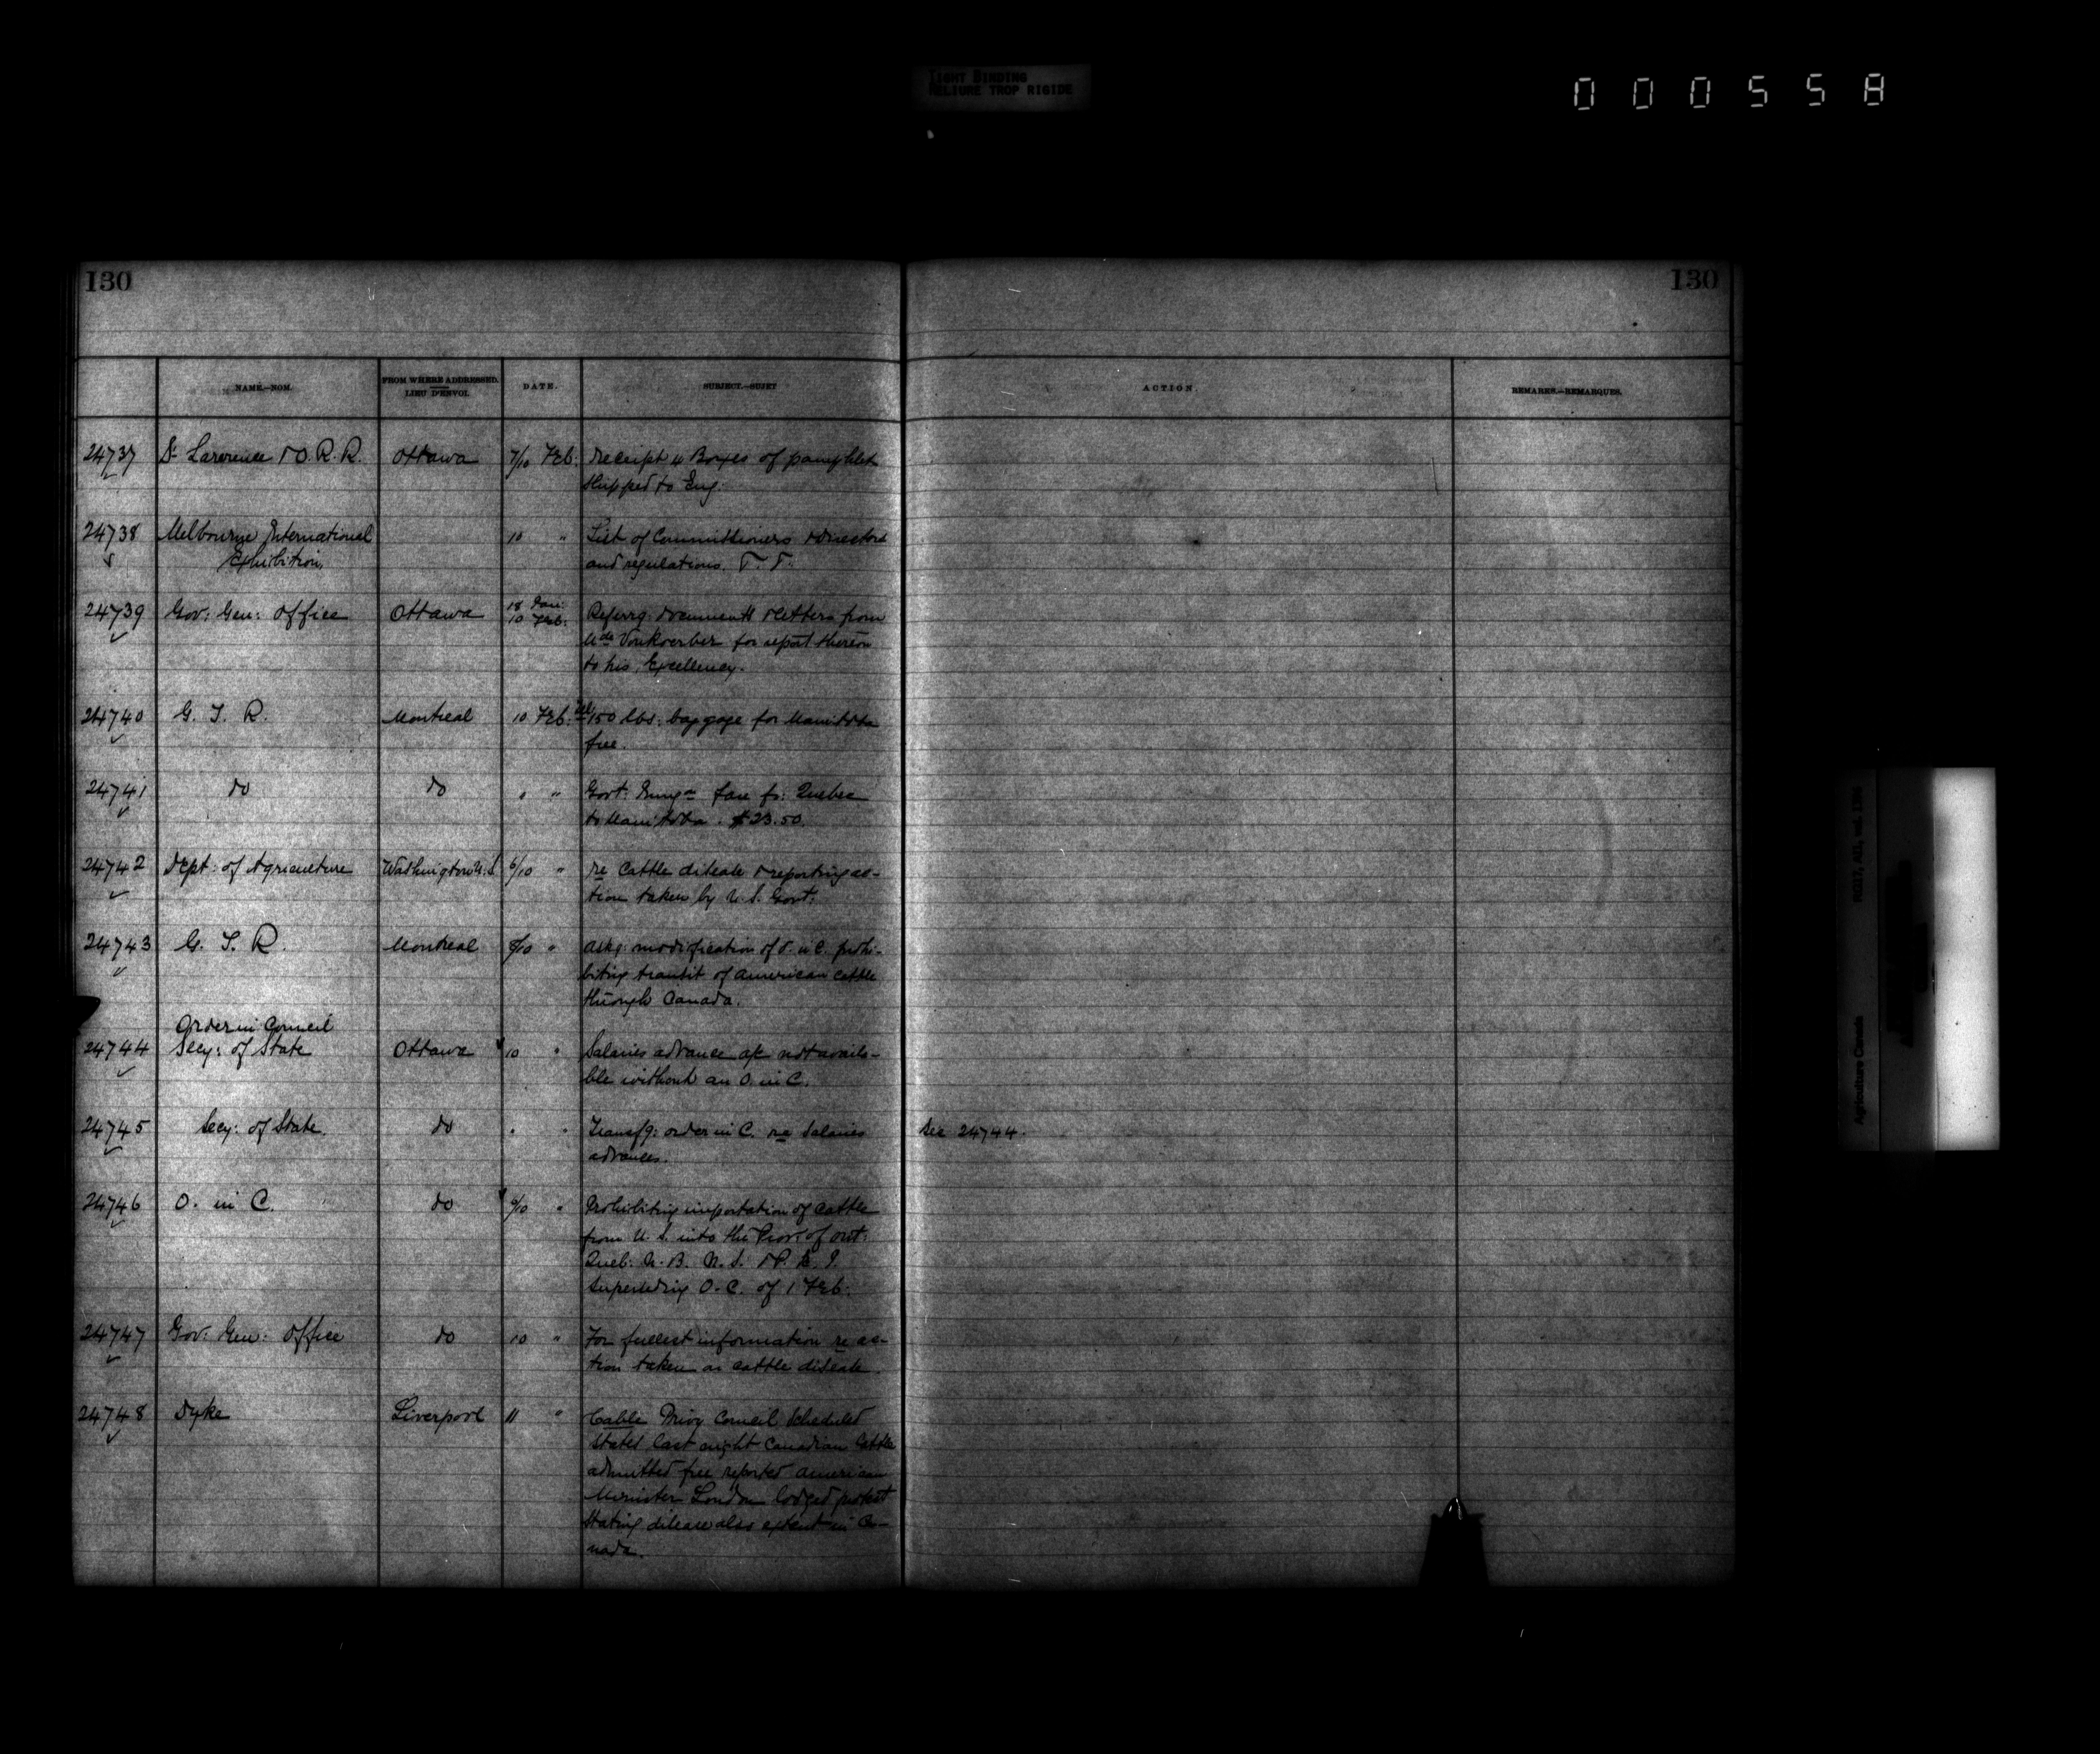 TIGHT BINDING
RELIURE TROP RIGIDE
000558
130
130
NAME.—NOM.
FROM WHERE ADDRESSED.
LIEU D'ENVOI.
DATE.
SUBJECT.—SUJET
ACTION.
REMARKS.—REMARQUES.
24737 St Lawrence & O. R. R. Ottawa 7/10 Feb: Receipt 4 Boxes of pamphlets
shipped to Eng.
24738 Melbourne International 10 " List of Commissioners & directors
Exhibition, and regulations. T. T.
24739 Gov: Gen: Office Ottawa 18 Jan: Referrg: documents & letters from
10 Feb: Vonkoerber for report thereon
to his Excellency.
24740 G. T. R. Montreal 10 Feb: 150 lbs: baggage for Manitoba
free.
24741 do do " " Govt: fare fr: Quebec
to Manitoba. $23.50.
24742 Dept: of Agriculture Washington U.S. 6/10 " re Cattle disease & reporting ac-
tion taken by U. S. Govt:
24743 G. T. R. Montreal 8/10 " Askg: modification of O. in C. prohi-
biting transit of American cattle
through Canada.
Order in Council
24744 Secy: of State Ottawa 10 " Salaries advance of not availa-
ble without an O. in C.
24745 Secy: of State do " " Transfg: order in C. re Salaries
advances.
See 24744.
24746 O. in C. do 9/10 " Prohibiting importation of cattle
from U. S. into the Prov: of Ont:
Queb: N. B. N. S. & P. E. I.
Superseding O. C. of 1 Feb:
24747 Gov: Gen: Office do 10 " For fullest information re ac-
tion taken on cattle disease.
24748 Dyke Liverpool 11 " Cable Privy Council scheduled
States last night Canadian Cattle
admitted free reported American
Minister London lodged protest
stating disease also extent in Ca-
nada.
RG17, AII, vol. 1386
Agriculture Canada